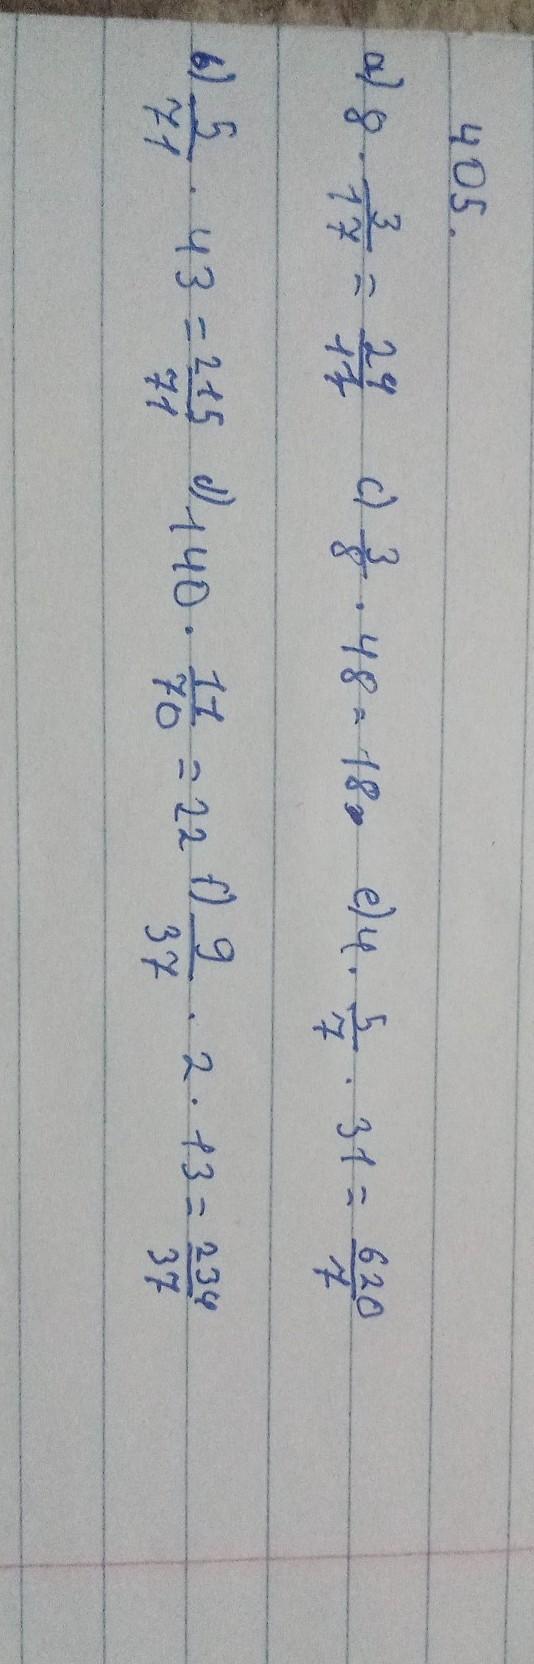 405.
a) 8 · 3/17 = 24/17 c) 3/8 · 48 = 18. e) 4 · 5/7 · 31 = 620/7
b) 5/71 · 43 = 215/71 d) 140 · 11/70 = 22 f) 9/37 · 2 · 13 = 234/37